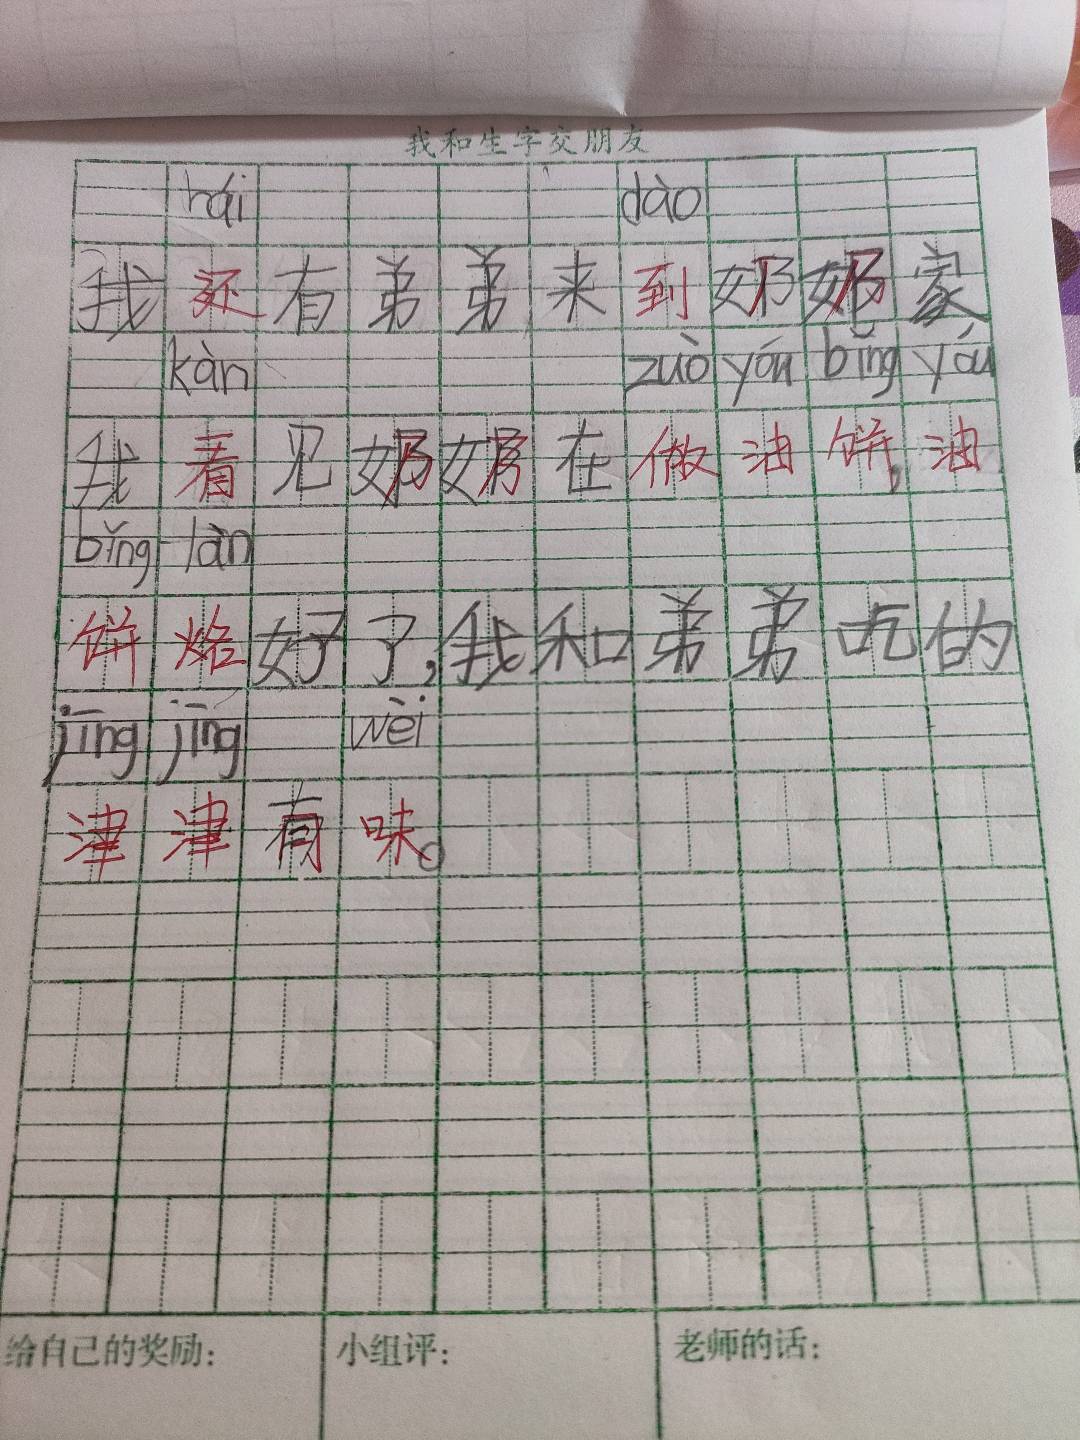 我和生字交朋友
hái dào
我还有弟弟来到奶奶家
kàn zuò yóu bǐng yóu
我看见奶奶在做油饼,油
bǐng làn
饼烙好了,我和弟弟吃的
jīng jīng wèi
津津有味。
给自己的奖励: 小组评: 老师的话: